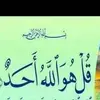 بسم الله الرحمن الرحيم
قُلْ هُوَ اللَّهُ أَحَدٌ